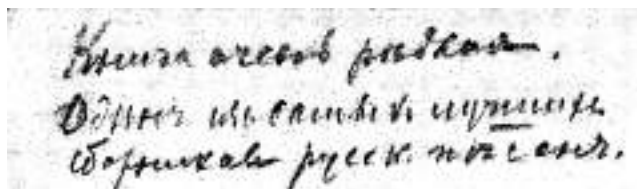 Книга очень рѣдкая.
Одинъ изъ самыхъ лучшихъ
сборниковъ русск. пѣсенъ.